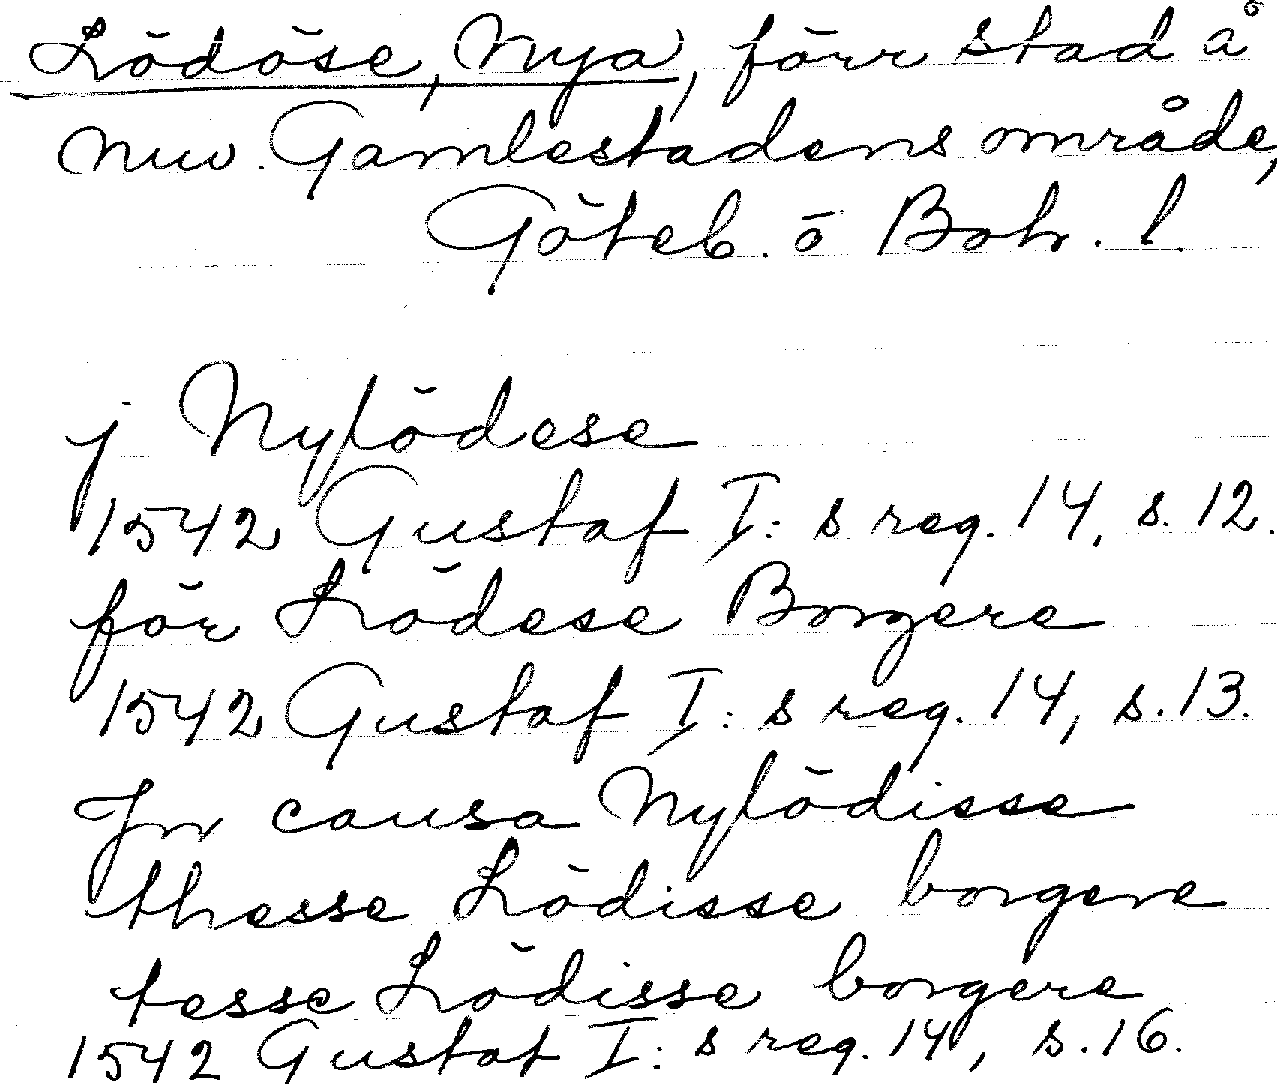 Lödöse, Nya, förr stad å
nuv. Gamlestadens område,
Göteb. o Boh. l.
j Nylödese
1542 Gustaf I:s reg. 14, s. 12.
för Lödese Borgere
1542 Gustaf I:s reg. 14, s. 13.
Jn causa Nylödisse
thesse Lödisse borgere
tesse Lödisse borgere
1542 Gustaf I:s reg. 14, s. 16.